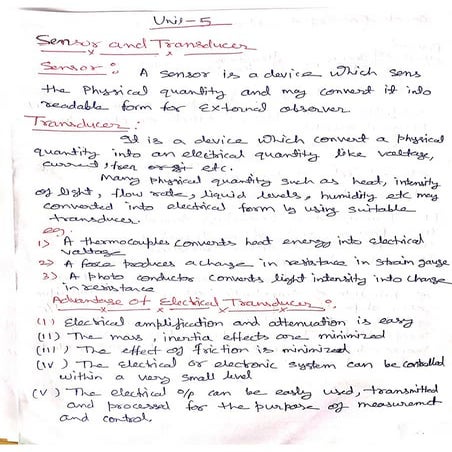 Unit-5
Sensor and Transducer
Sensor: A sensor is a device which sens
the Physical quantity and may convert it into
readable form for External observer.
Transducer:
It is a device which convert a physical
quantity into an electrical quantity like valtage,
current, etc.
Many physical quantity such as heat, intensity
of light, flow rate, liquid levels, humidity etc may
converted into electrical form by using suitable
transducer.
eg.
1) A thermocouples converts heat energy into electrical
valtage
2) A force produces a change in resistance in strain gauge
3) A photo conductor converts light intensity into change
in resistance
Advantage of Electrical Transducer:
(i) Electrical amplification and attenuation is easy
(ii) The mass, inertia effects are minimized
(iii) The effect of friction is minimized
(iv) The electrical or electronic system can be controlled
within a very small level
(v) The electrical o/p can be easily used, transmitted
and processed for the purpose of measuremet
and control.